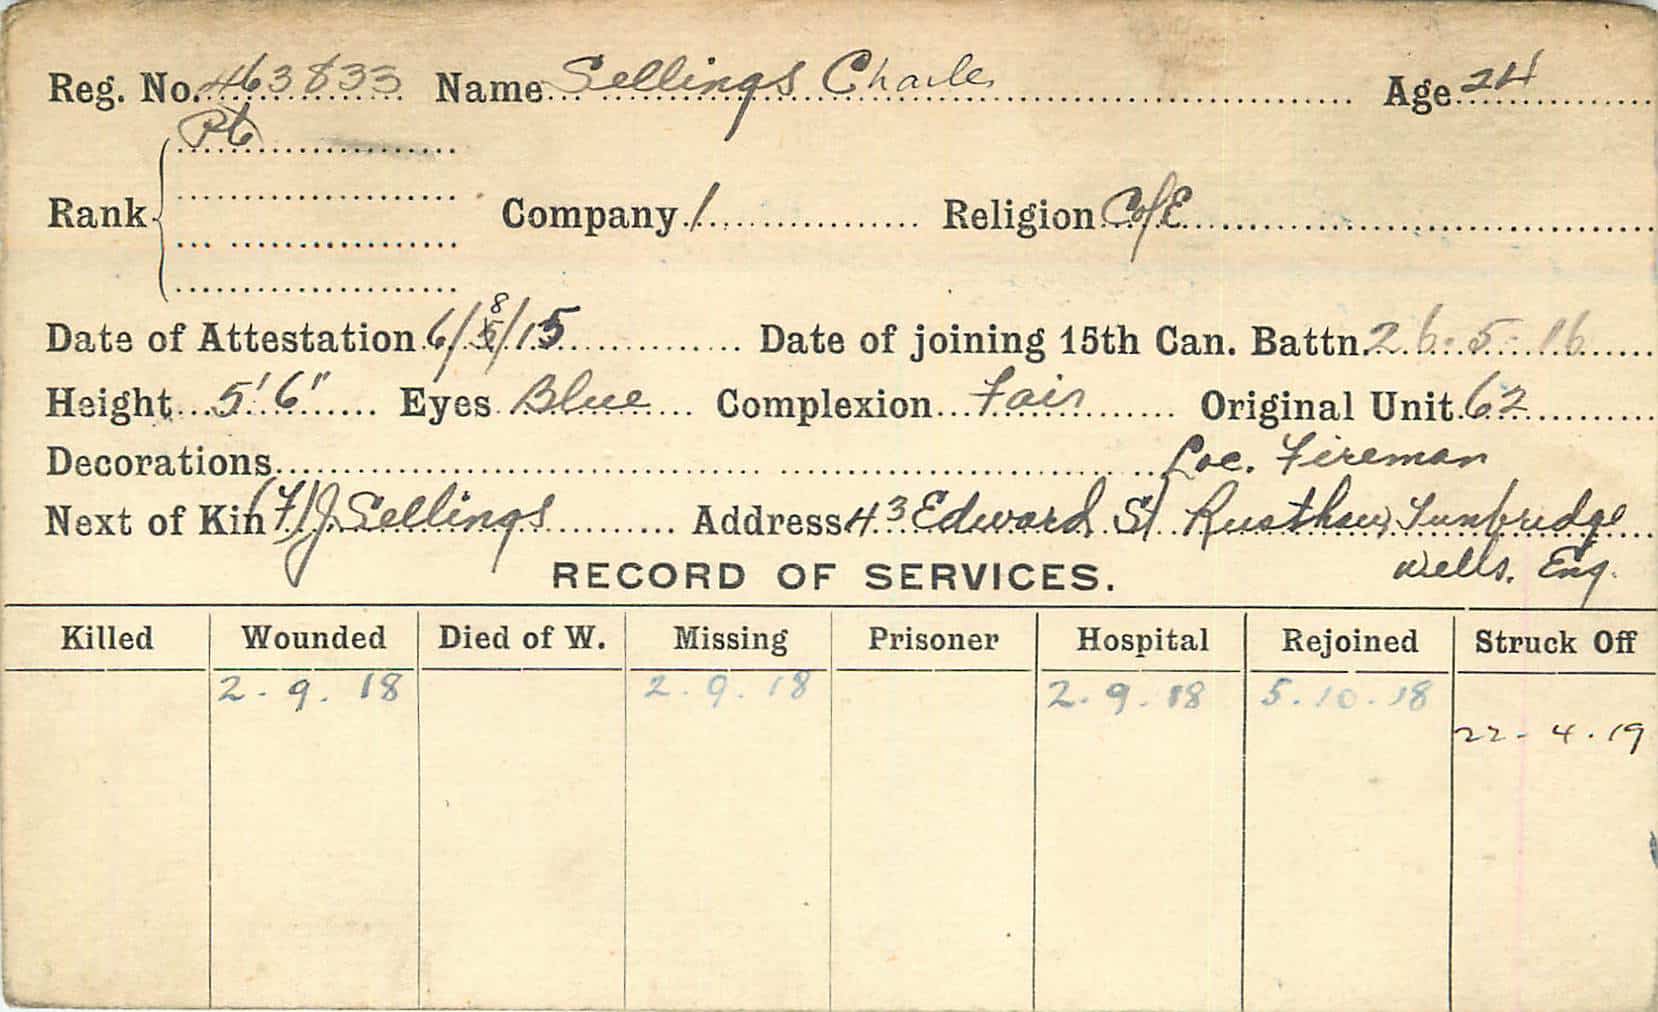 Reg. No. 463833 Name Sellings Charles Age 24
Pte
Rank Company 1 Religion C of E
Date of Attestation 6/8/15 Date of joining 15th Can. Battn. 26.5.16
Height 5'6" Eyes Blue Complexion Fair Original Unit 62
Decorations Loc. Fireman
Next of Kin (F) J. Sellings Address 43 Edward St Rusthall, Tunbridge
Wells. Eng.
RECORD OF SERVICES.
Killed Wounded Died of W. Missing Prisoner Hospital Rejoined Struck Off
2.9.18 2.9.18 2.9.18 5.10.18
22-4.19